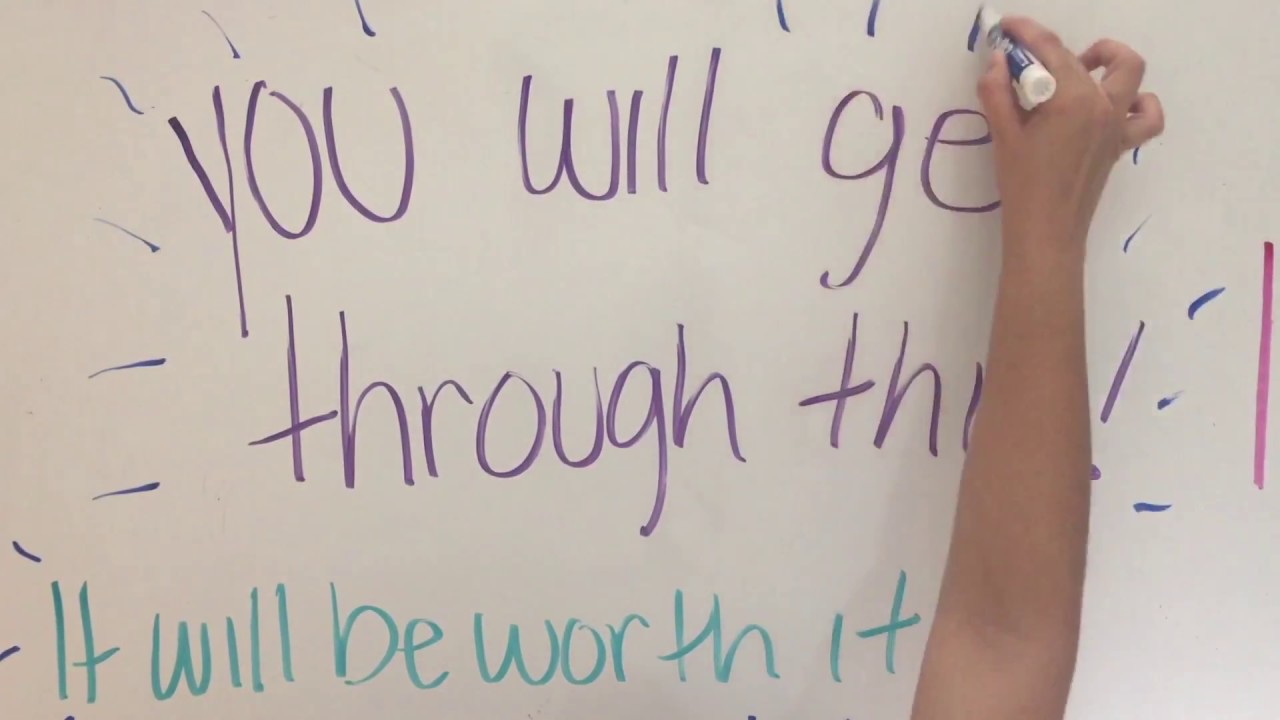 you will ge
through thi !
It will be worth it